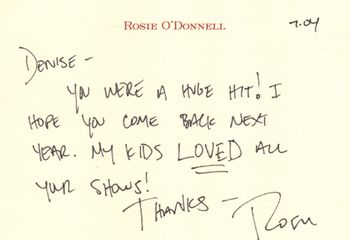 ROSIE O'DONNELL
7.04
DENISE -
YOU WERE A HUGE HIT! I
HOPE YOU COME BACK NEXT
YEAR. MY KIDS LOVED ALL
YOUR SHOWS!
THANKS -
ROSIE